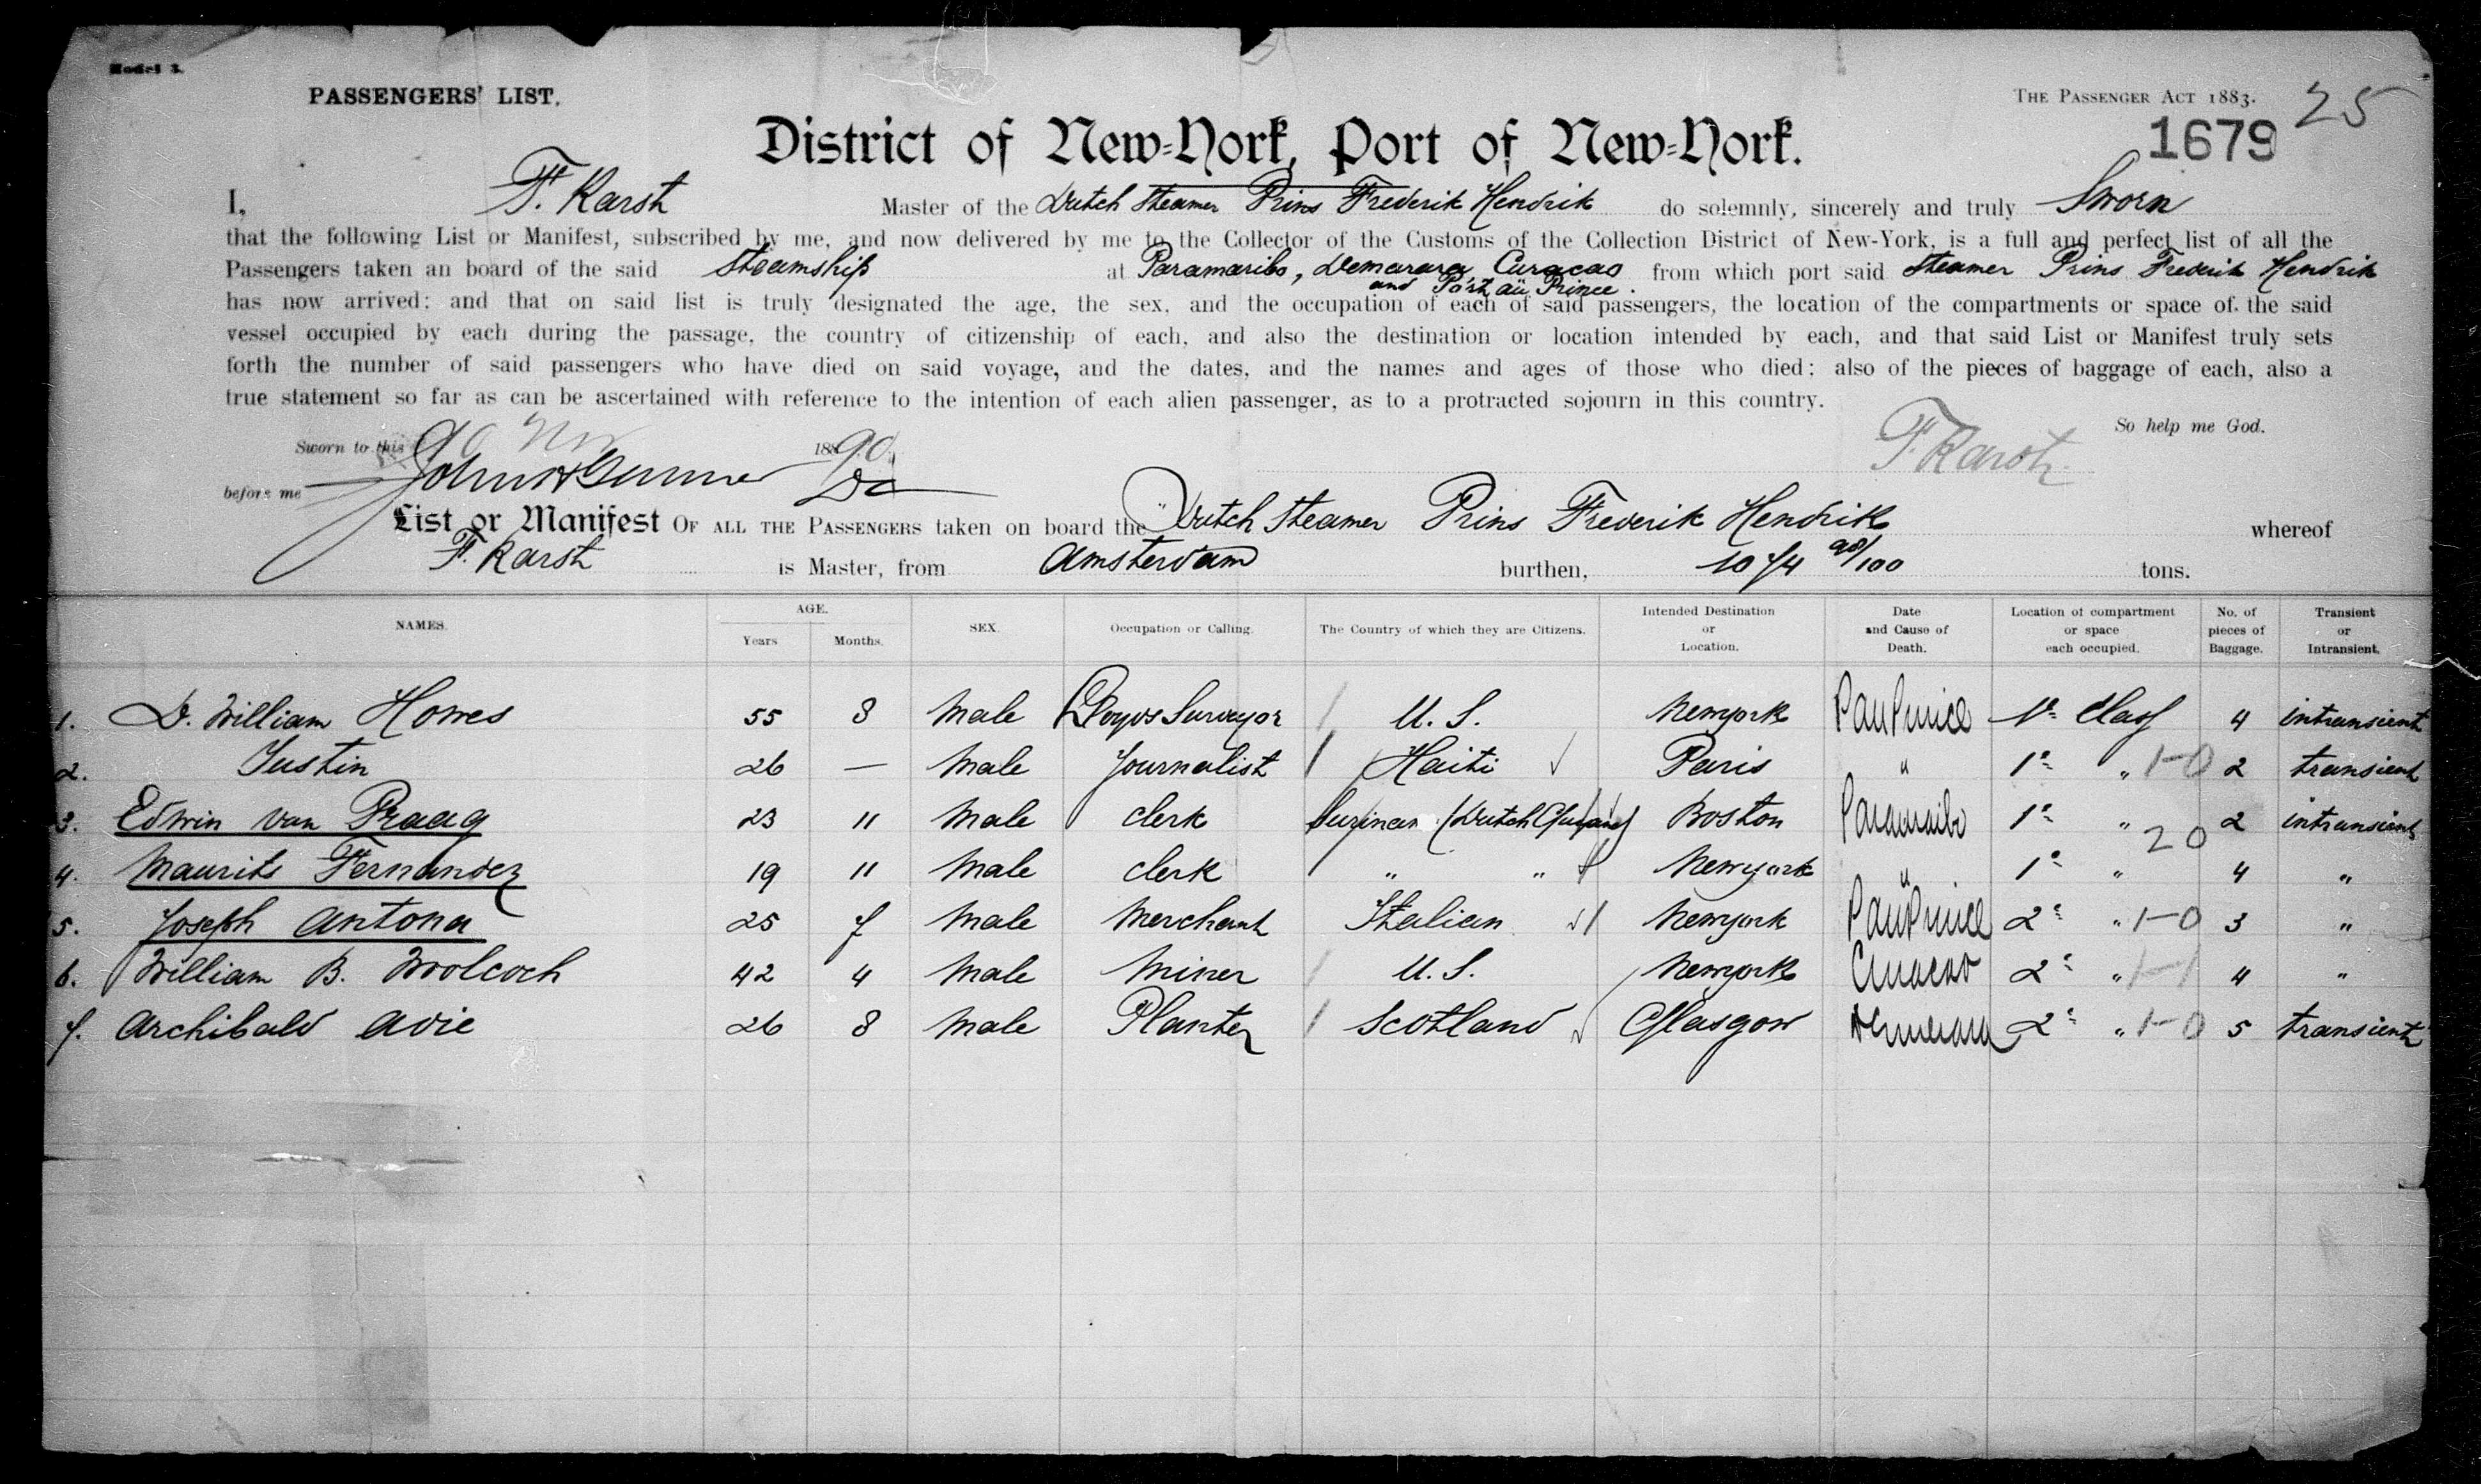 Model 3.
PASSENGERS' LIST.
THE PASSENGER ACT 1883.
25
1679
District of New-York, Port of New-York.
I, F. Karst Master of the Dutch Steamer Prins Frederik Hendrik do solemnly, sincerely and truly Sworn
that the following List or Manifest, subscribed by me, and now delivered by me to the Collector of the Customs of the Collection District of New-York, is a full and perfect list of all the
Passengers taken an board of the said Steamship at Paramaribo, Demarara, Curacao from which port said Steamer Prins Frederik Hendrik
and Port au Prince.
has now arrived; and that on said list is truly designated the age, the sex, and the occupation of each of said passengers, the location of the compartments or space of the said
vessel occupied by each during the passage, the country of citizenship of each, and also the destination or location intended by each, and that said List or Manifest truly sets
forth the number of said passengers who have died on said voyage, and the dates, and the names and ages of those who died; also of the pieces of baggage of each, also a
true statement so far as can be ascertained with reference to the intention of each alien passenger, as to a protracted sojourn in this country.
So help me God.
Sworn to this Nov 1890
F. Karst
before me
List or Manifest OF ALL THE PASSENGERS taken on board the Dutch Steamer Prins Frederik Hendrik whereof
F. Karst is Master, from Amsterdam burthen, 1074 98/100 tons.
NAMES. AGE. Years Months. SEX. Occupation or Calling. The Country of which they are Citizens. Intended Destination or Location. Date and Cause of Death. Location of compartment or space each occupied. No. of pieces of Baggage. Transient or Intransient.
1. D. William Howes 55 8 Male Lloyds Surveyor / U. S. Newyork PauPrince 1e Class 4 intransient
2. Justin 26 — Male Journalist / Haiti ✓ Paris " 1e " 1-0 2 transient
3. Edwin van Praag 23 11 Male clerk Surinam (Dutch Guyana) Boston Paramaribo 1e " 2 intransient
20
4. Maurits Fernandez 19 11 Male clerk " " Newyork " 1e " 4 "
5. Joseph Antona 25 7 Male Merchant Italian ✓ / Newyork PauPrince 2e " 1-0 3 "
6. William B. Woolcoch 42 4 Male Miner / U. S. Newyork Curacao 2e " 1-1 4 "
7. Archibald Adie 26 8 Male Planter / Scotland ✓ Glasgow Demerara 2e " 1-0 5 transient